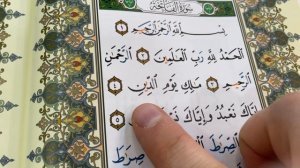 سُورَةُ الفَاتِحَةِ
بِسْمِ ٱللَّهِ ٱلرَّحْمَٰنِ ٱلرَّحِيمِ ١
ٱلْحَمْدُ لِلَّهِ رَبِّ ٱلْعَٰلَمِينَ ٢ ٱلرَّحْمَٰنِ
ٱلرَّحِيمِ ٣ مَٰلِكِ يَوْمِ ٱلدِّينِ ٤
إِيَّاكَ نَعْبُدُ وَإِيَّاكَ ٥
ٱلصِّرَٰطَ صِرَٰطَ